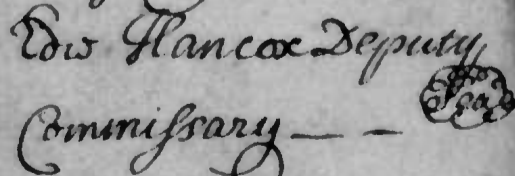 Edw Hancox Deputy
Commiſsary — — Seal